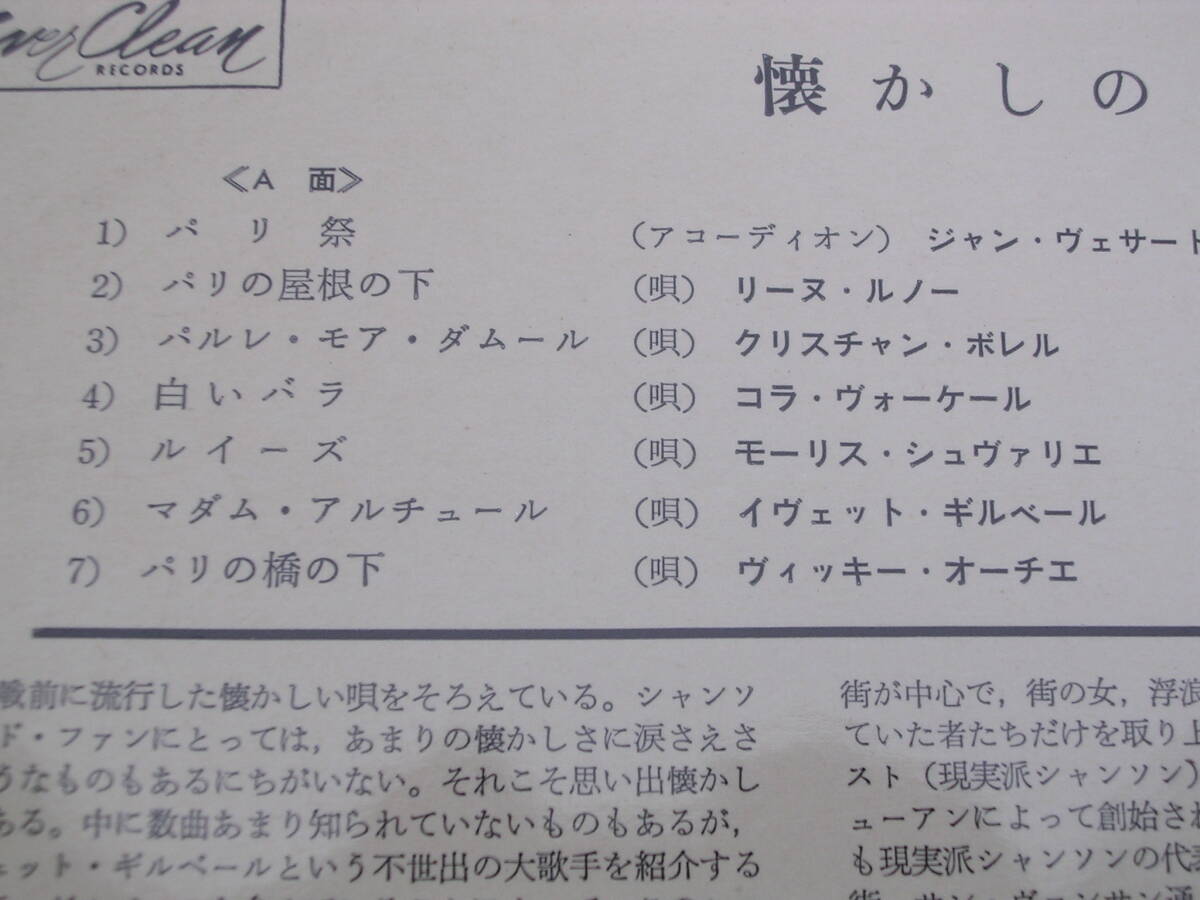 Ever Clean
RECORDS
懐かしの
≪A 面≫
1) パリ祭 (アコーディオン) ジャン・ヴェサート
2) パリの屋根の下 (唄) リーヌ・ルノー
3) パルレ・モア・ダムール (唄) クリスチャン・ボレル
4) 白いバラ (唄) コラ・ヴォーケール
5) ルイーズ (唄) モーリス・シュヴァリエ
6) マダム・アルチュール (唄) イヴェット・ギルベール
7) パリの橋の下 (唄) ヴィッキー・オーチエ
戦前に流行した懐かしい唄をそろえている。シャンソ
ド・ファンにとっては，あまりの懐かしさに涙さえさ
うなものもあるにちがいない。それこそ思い出懐かし
ある。中に数曲あまり知られていないものもあるが，
ェット・ギルベールという不世出の大歌手を紹介する
街が中心で，街の女，浮浪
ていた者たちだけを取り上
スト（現実派シャンソン）
ューアンによって創始され
も現実派シャンソンの代表